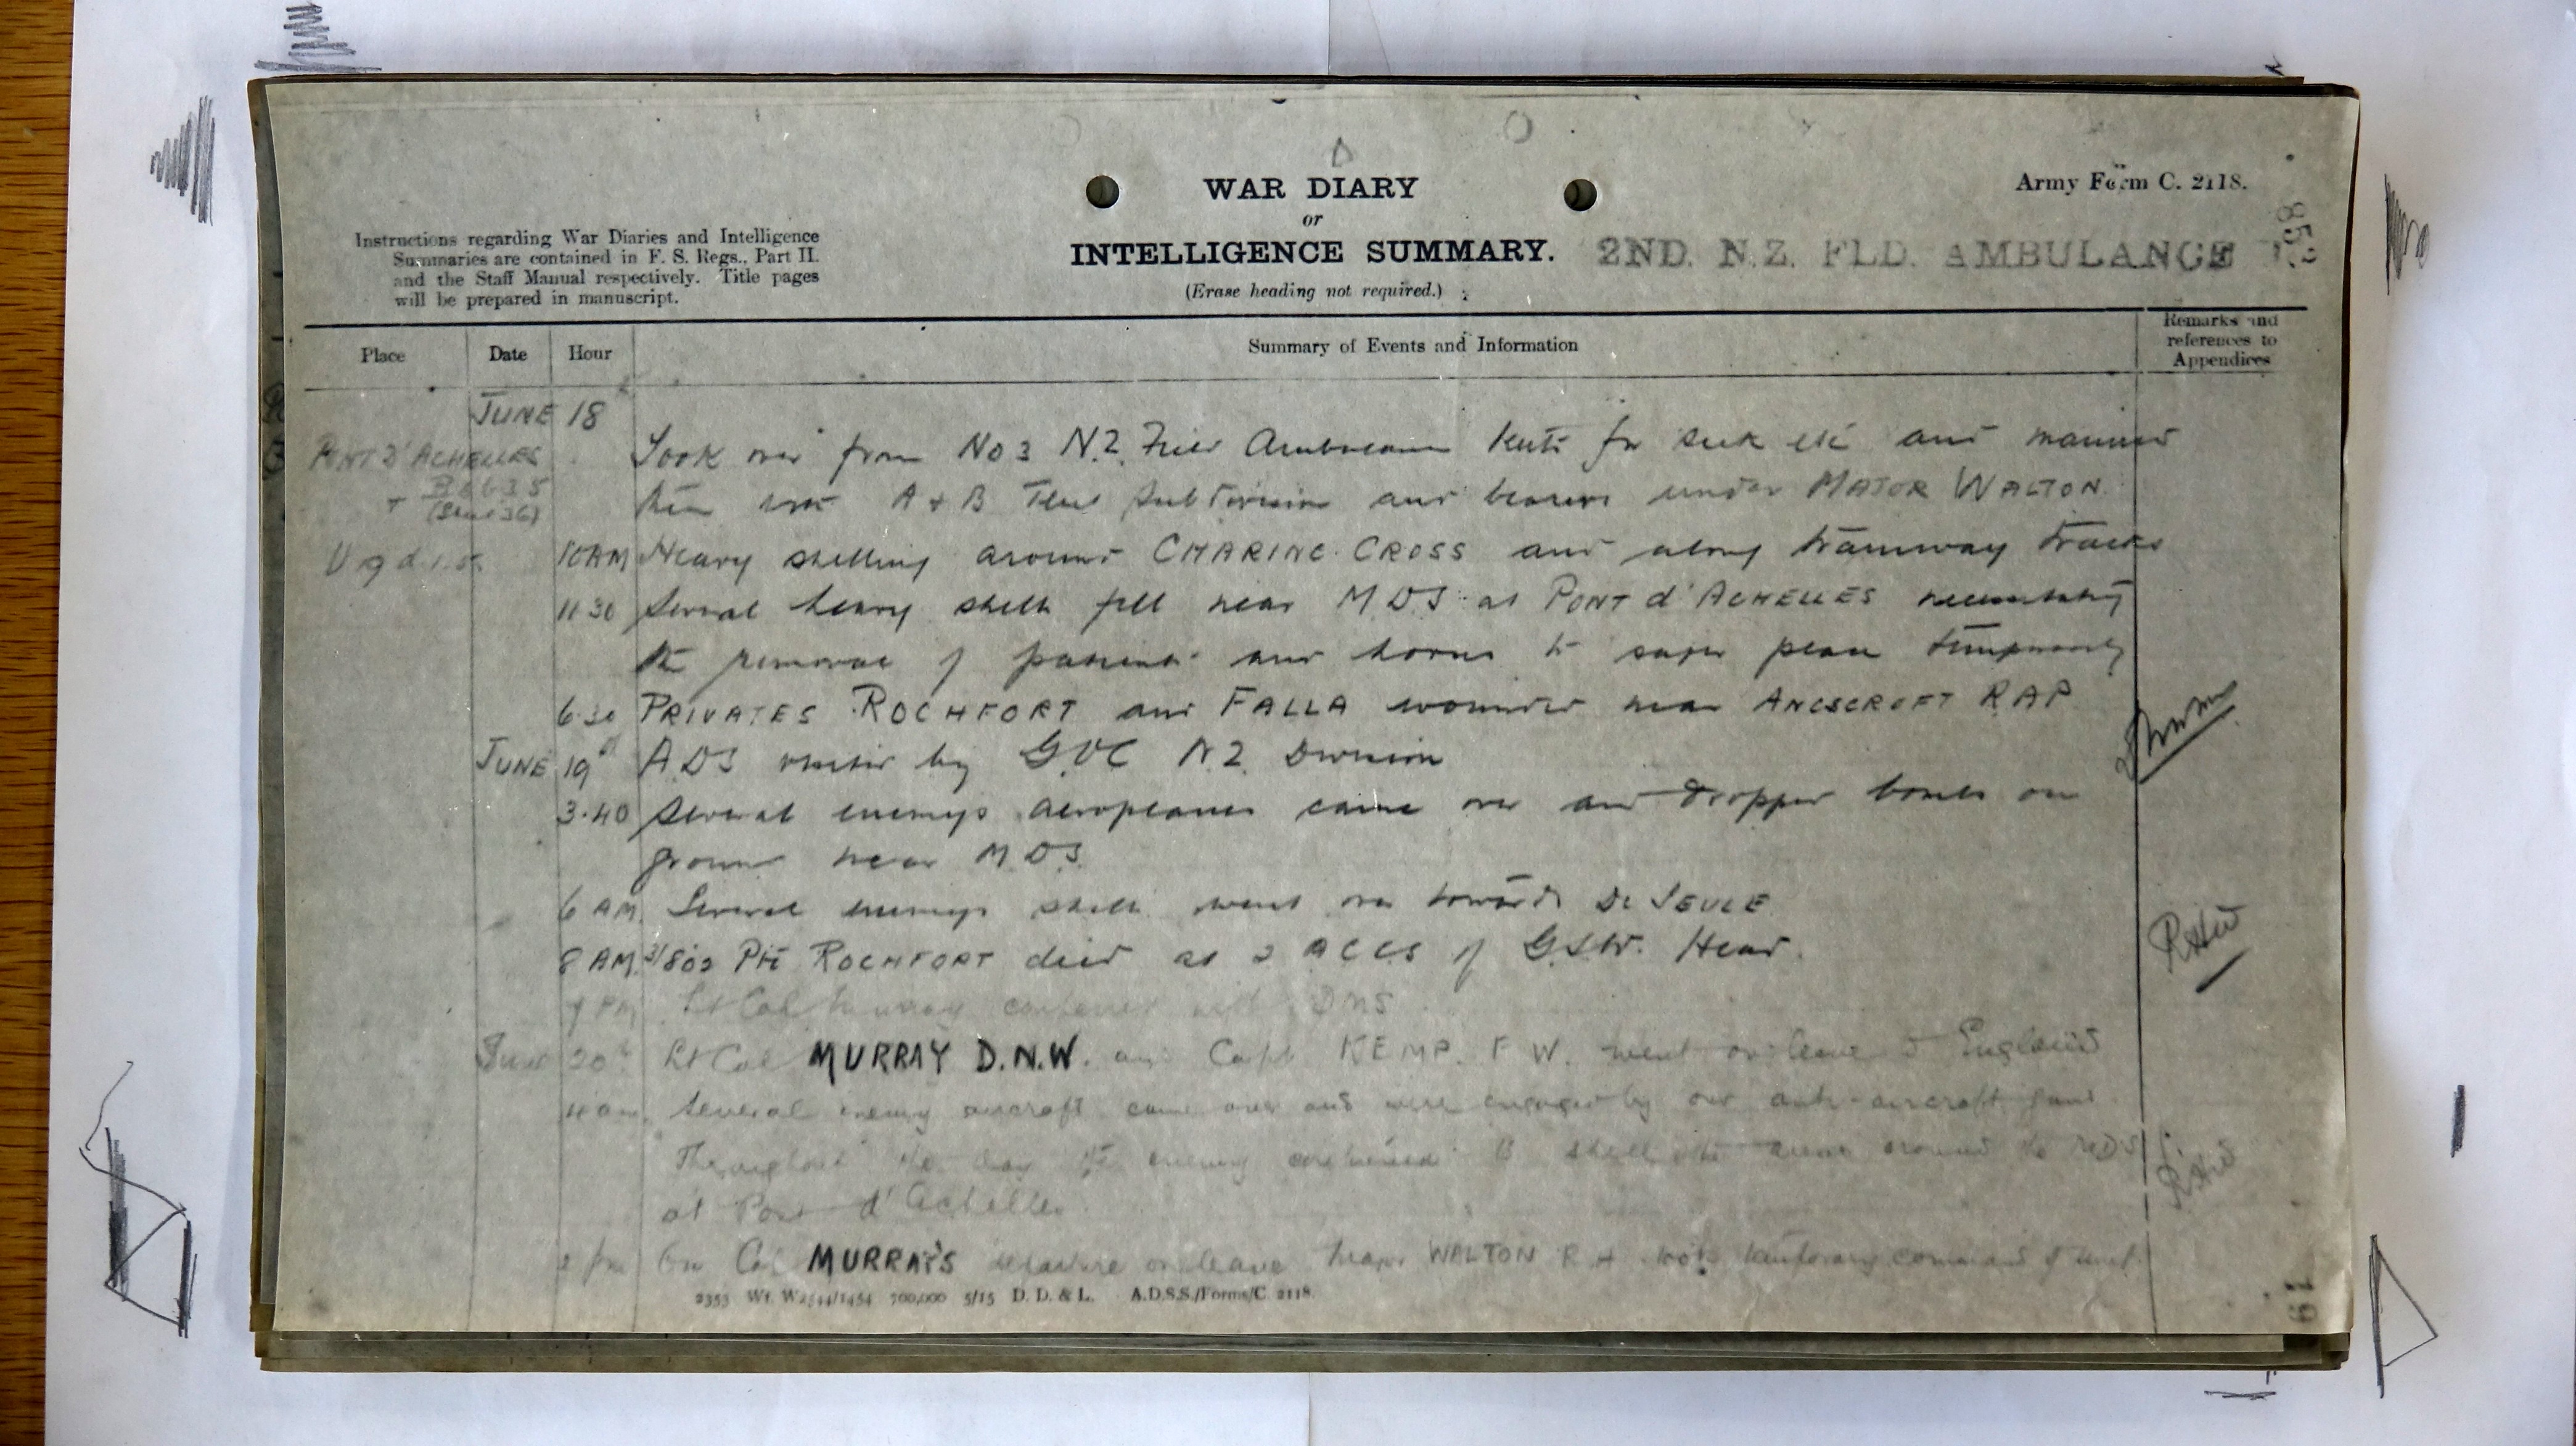 WAR DIARY
or
INTELLIGENCE SUMMARY.
(Erase heading not required.)
2ND. N.Z. FLD. AMBULANCE
Army Form C. 2118.
Instructions regarding War Diaries and Intelligence
Summaries are contained in F. S. Regs., Part II.
and the Staff Manual respectively. Title pages
will be prepared in manuscript.
Place Date Hour Summary of Events and Information Remarks and
references to
Appendices
JUNE 18
PONT D'ACHELLES Took over from No 3 N.Z. Field Ambulance tents for sick etc and manned
B 6 b 3 5 A + B Tent Subdivision and bearers under MAJOR WALTON.
U 19 d. 1.5. 10 AM Heavy shelling around CHARING CROSS and along tramway tracks
11 30 Several heavy shells fell near M.D.S. at PONT d'ACHELLES necessitating
the removal of patients and horses to safer place temporarily
6.30 PRIVATES ROCHFORT and FALLA wounded near RAP
JUNE 19 A.D.S visited by G.O.C N.Z. Division
3.40 Several enemys aeroplanes came over and dropped bombs on
ground near M.D.S.
6 AM. Several enemys shells went over towards De SEULE
8 AM. 3/802 Pte ROCHFORT died at 2 ACCS of G.S.W. Head.
9 PM Lt Col Murray conferred with DMS
June 20th Lt Col MURRAY D.N.W. and Capt KEMP. F W. went on leave to England
4 am. Several enemy aircraft came over and were engaged by our anti-aircraft guns.
Throughout the day the enemy continued to shell the area around the MDS
at Pont d'Achelles
2 pm On Col MURRAY'S departure on leave Major WALTON R H took temporary command of unit.
RHW
RHW
2353 Wt. W2544/1454 700,000 5/15 D. D. & L. A.D.S.S./Forms/C. 2118.